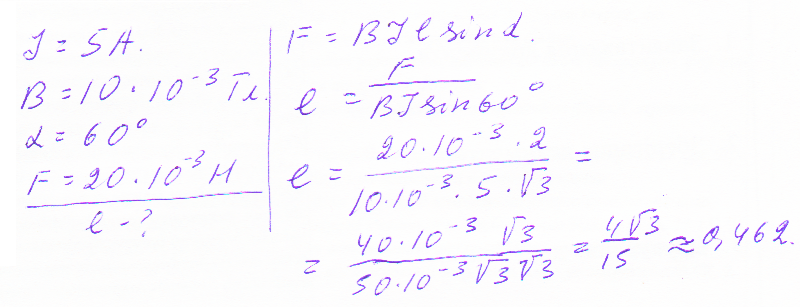 J = 5A.
B = 10 · 10⁻³ Тл.
α = 60°
F = 20 · 10⁻³ Н
l - ?
F = BJl sin α.
l = F / BJ sin 60°
l = 20 · 10⁻³ · 2 / 10 · 10⁻³ · 5 · √3 =
= 40 · 10⁻³ √3 / 50 · 10⁻³ √3 √3 = 4√3 / 15 ≈ 0,462.